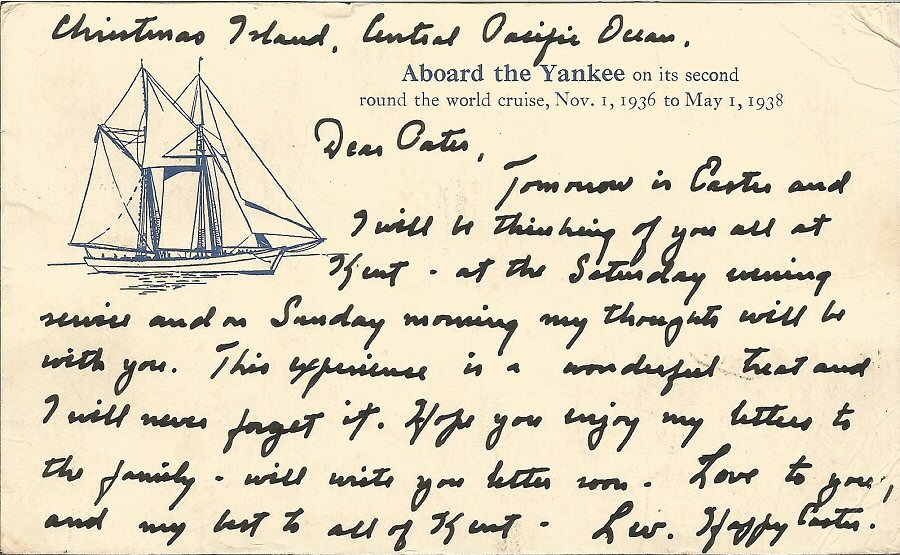 Christmas Island, Central Pacific Ocean.
Aboard the Yankee on its second
round the world cruise, Nov. 1, 1936 to May 1, 1938
Dear Pater,
Tomorrow is Easter and
I will be thinking of you all at
Kent - at the Saturday evening
service and on Sunday morning my thoughts will be
with you. This experience is a wonderful treat and
I will never forget it. Hope you enjoy my letters to
the family - will write you letter soon. Love to you,
and my best to all of Kent - Lw. Happy Easter.